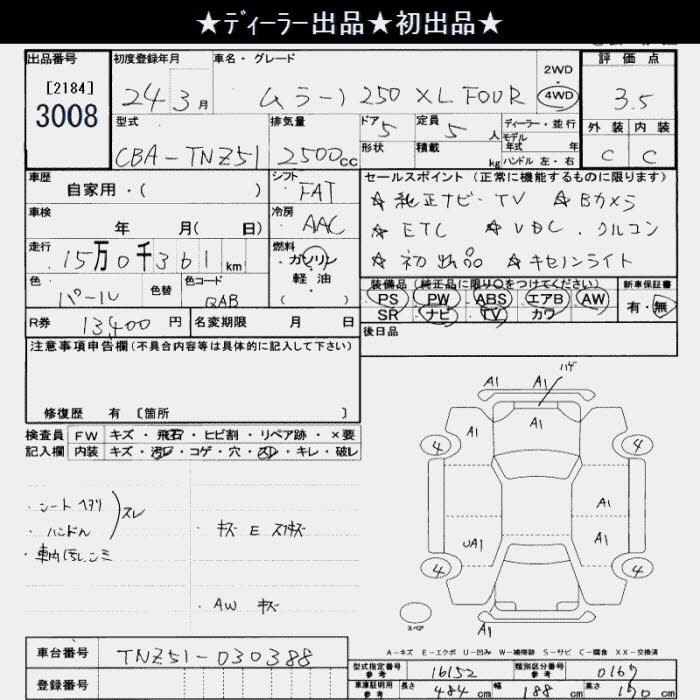 ★ディーラー出品★初出品★
出品番号 初度登録年月 車名・グレード 2WD・4WD 評価点
[2184]
3008
24 3月 ムラーノ 250 XL FOUR 3.5
型式 排気量 ドア 定員 ディーラー・並行 外装 内装
CBA-TNZ51 2500cc 5 5人 モデル年式 年
形状 積載 kg ハンドル 左・右 C C
車歴 シフト セールスポイント(正常に機能するものに限ります)
自家用・( ) FAT ☆純正ナビ・TV ☆Bカメラ
車検 冷房 ☆ETC ☆VDC.クルコン
年 月( 日) AAC
走行 燃料 ☆初出品 ☆キセノンライト
15万0千361km ガソリン
軽油
( )
色 色替 色コード 装備品(純正品に限り○をつけてください) 新車保証書
パール QAB PS PW ABS エアB AW 有・無
SR ナビ TV カワ
R券 13,400円 名変期限 月 日 後日品
注意事項申告欄(不具合内容等は具体的に記入して下さい)
修復歴 有 [箇所 ]
検査員 FW キズ・飛石・ヒビ割・リペア跡・×要
記入欄 内装 キズ・汚レ・コゲ・穴・スレ・キレ・破レ
・シートヘタリ
・ハンドル スレ
・車内汚レシミ
・キズ E スリキズ
・AW キズ
ハゲ
A1 A1
A1 A1
4 4
A1
UA1 A1
4 4
スペア A1
A-キズ E-エクボ U-凹み W-補修跡 S-サビ C-腐食 XX-交換済
車台番号 TNZ51-030388
登録番号
型式指定番号 参考 16152 類別区分番号 参考 0169
車庫証明用 参考 長さ 484cm 幅 188cm 高さ 160cm